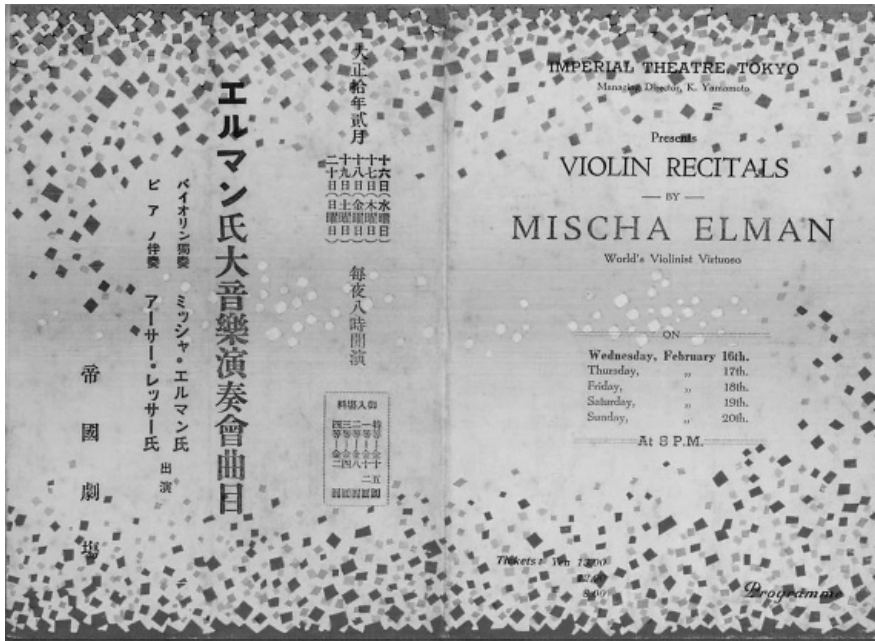 大正拾年貳月
十六日(水曜日)
十七日(木曜日)
十八日(金曜日)
十九日(土曜日)
二十日(日曜日)
毎夜八時開演
御入場料
特等…金十五圓
一等…金十二圓
二等…金八圓
三等…金四圓
四等…金二圓
エルマン氏大音樂演奏會曲目
バイオリン獨奏 ミッシャ・エルマン氏
ピアノ伴奏 アーサー・レッサー氏
出演
帝國劇場
IMPERIAL THEATRE, TOKYO
Managing Director, K. Yamamoto
Presents
VIOLIN RECITALS
— BY —
MISCHA ELMAN
World's Violinist Virtuoso
ON
Wednesday, February 16th.
Thursday, „ 17th.
Friday, „ 18th.
Saturday, „ 19th.
Sunday, „ 20th.
At 8 P.M.
Tickets: Yen 15.00
12.00
8.00
Programme